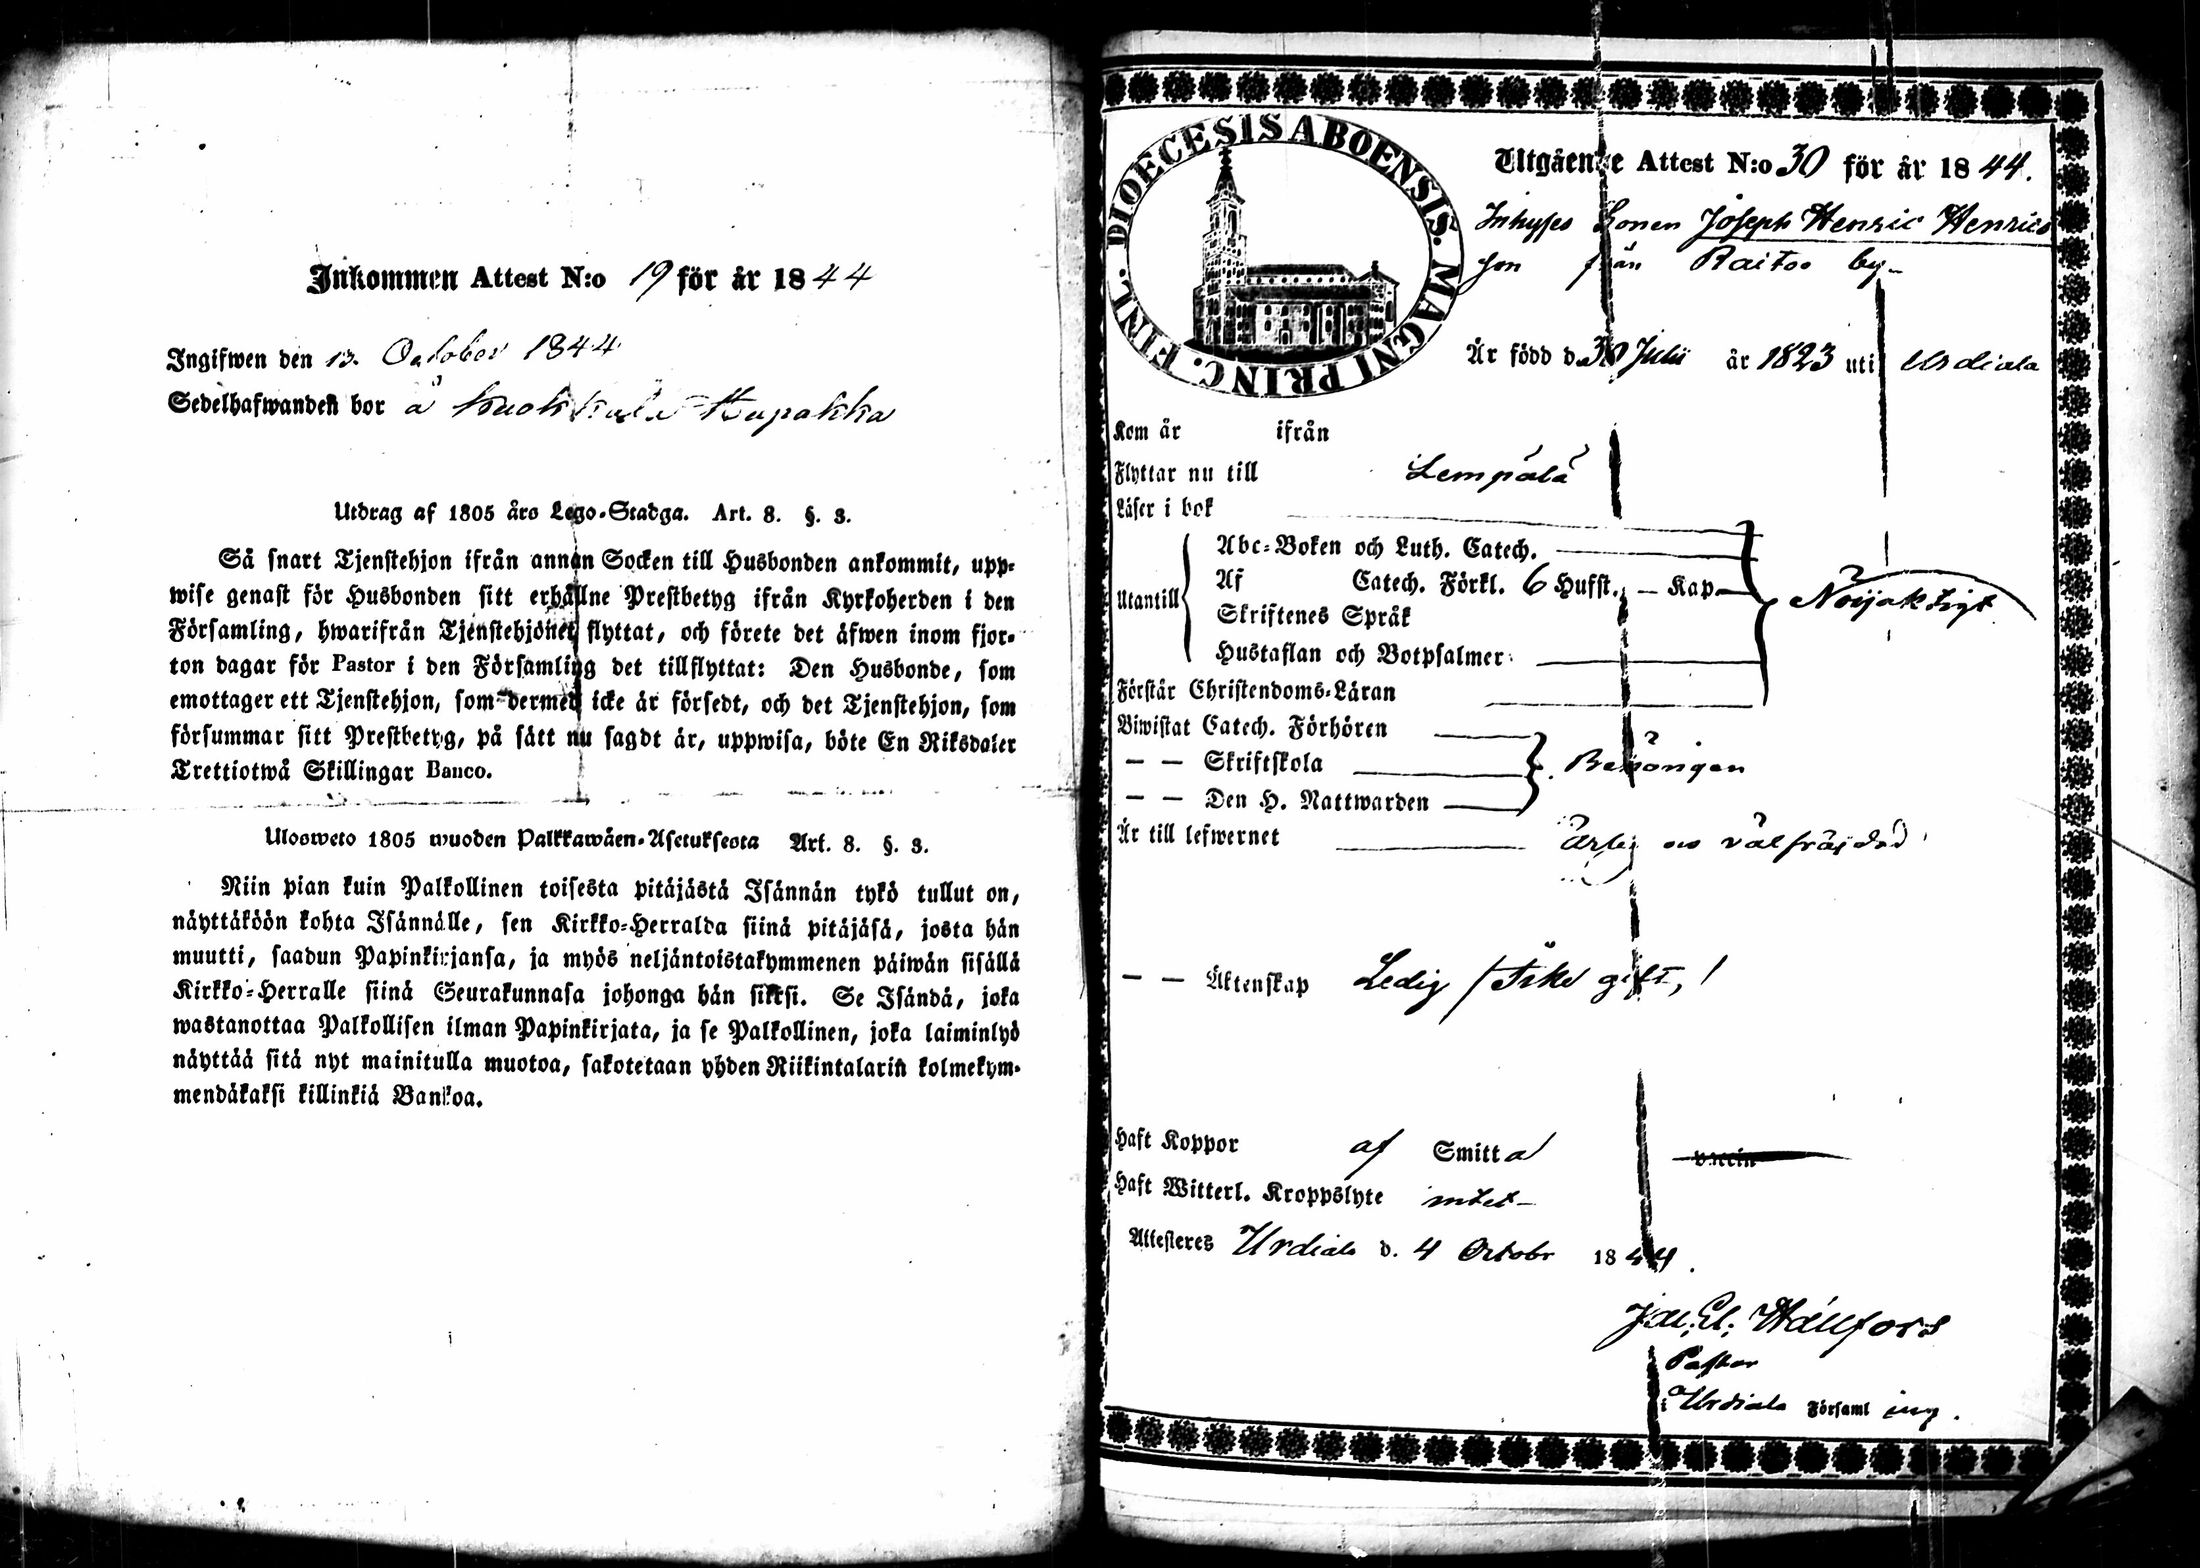 Inkommen Attest N:o 19 för år 1844
Ingifwen den 13. October 1844
Sedelhafwanden bor å Kuokkala
Utdrag af 1805 års Lego-Stadga. Art. 8. §. 3.
Så snart Tjenstehjon ifrån annan Socken till Husbonden ankommit, upp-
wise genast för Husbonden sitt erhållne Prestbetyg ifrån Kyrkoherden i den
Församling, hwarifrån Tjenstehjonet flyttat, och förete det äfwen inom fjor-
ton dagar för Pastor i den Församling det tillflyttat: Den Husbonde, som
emottager ett Tjenstehjon, som dermed icke är försedt, och det Tjenstehjon, som
försummar sitt Prestbetyg, på sätt nu sagdt är, uppwisa, böte En Riksdaler
Trettiotwå Skillingar Banco.
Ulosweto 1805 wuoden Palkkawäen-Asetuksesta Art. 8. §. 3.
Niin pian kuin Palkollinen toisesta pitäjästä Isännän tykö tullut on,
näyttäköön kohta Isännälle, sen Kirkko-Herralda siinä pitäjäsä, josta hän
muutti, saadun Papinkirjansa, ja myös neljäntoistakymmenen päiwän sisällä
Kirkko-Herralle siinä Seurakunnasa johonga hän siirsi. Se Isändä, joka
wastanottaa Palkollisen ilman Papinkirjata, ja se Palkollinen, joka laiminlyö
näyttää sitä nyt mainitulla muotoa, sakotetaan yhden Riikintalarin kolmekym-
mendäkaksi killinkiä Bankoa.
DIOECESIS ABOENSIS. MAGNI PRINC. FINL.
Utgående Attest N:o 30 för år 1844.
Inhyses Sonen Joseph Henric Henrics
son från Raitoo by
Är född d. 30 Julii år 1823 uti Urdiala
Kom år ifrån
Flyttar nu till Lempälä
Läser i bok
Utantill
Abc-Boken och Luth. Catech.
Af Catech. Förkl. 6 Hufst. — Kap
Skriftenes Språk
Hustaflan och Botpsalmer
Nöijaktigt
Förstår Christendoms-Läran
Biwistat Catech. Förhören
— — Skriftskola
— — Den H. Nattwarden
Behörigen
Är till lefwernet ärlig och välfräjdad
— — Äktenskap Ledig / Icke gift, /
Haft Koppor af Smitta vaccin
Haft Witterl. Kroppslyte intet
Attesteres Urdiala d. 4 Octobr 1844.
Wällfors
Pastor
i Urdiala Församling.